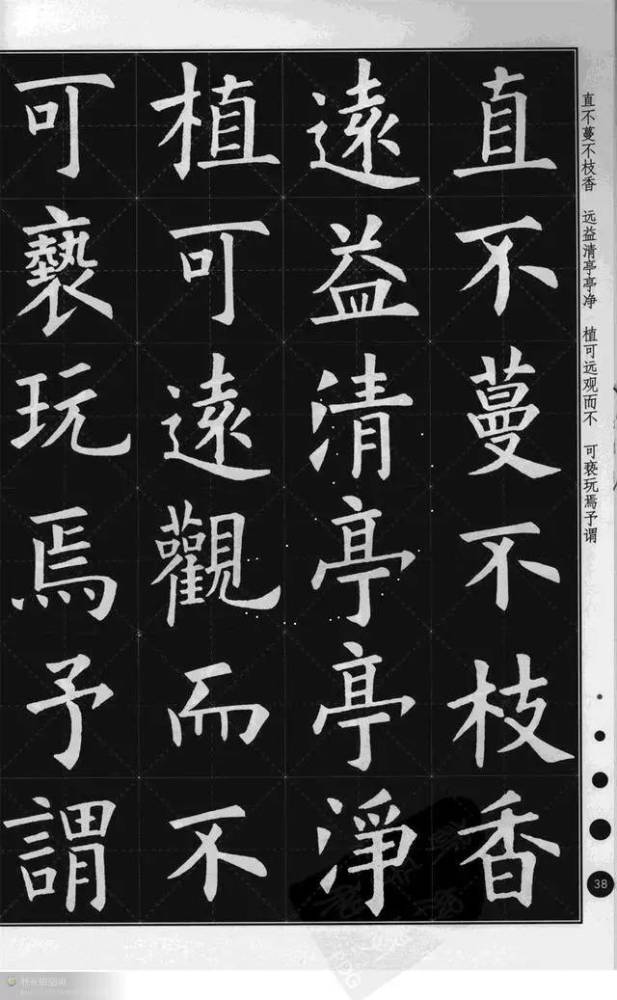 直不蔓不枝香
遠益清亭亭淨
植可遠觀而不
可褻玩焉予謂
直不蔓不枝香 远益清亭亭净 植可远观而不 可亵玩焉予谓
38